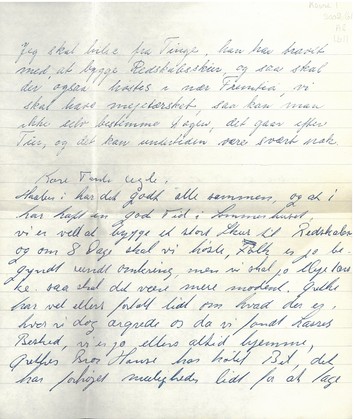 Jeg skal hilse fra Tinge, han har travlt
med, at bygge Redskabsskur, og saa skal
der ogsaa høstes i nær Fremtid, vi
skal have mejetærsket, saa kan man
ikke selv bestemme Dagen, det gaar efter
Tur, og det kan undertiden være svært nok.
Kære
Haaber i har det godt alle sammen, og at i
har haft en god Tid i Sommerhuset,
vi er ved at bygge et stort Skur til Redskaber
og om 8 Dage skal vi høste, Folk er jo be
gyndt rundt omkring, men vi skal jo
saa skal det være mere modent. Grethe
har vel ellers fortalt lidt om hvad der er,
hvor vi dog ærgrede os da vi fandt Jeres
Besked, vi er jo ellers altid hjemme,
Grethes Bror Hans har købt Bil, det
har forhøjet muligheder lidt for at tage